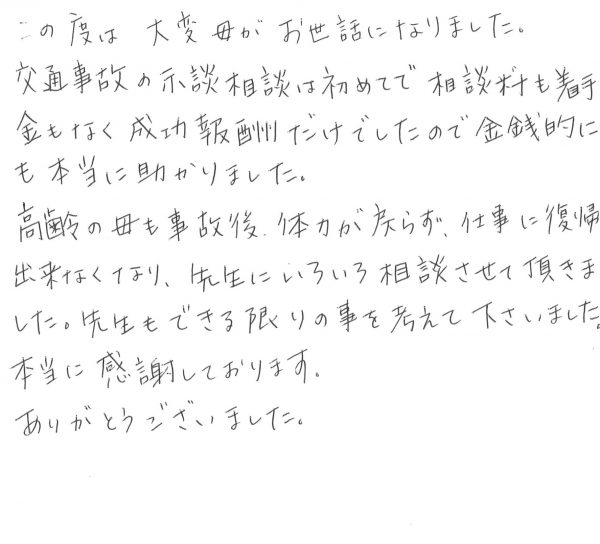 この度は 大変母がお世話になりました。
交通事故の示談相談は初めてで相談料も着手
金もなく成功報酬だけでしたので金銭的に
も本当に助かりました。
高齢の母も事故後、体力が戻らず、仕事に復帰
出来なくなり、先生にいろいろ相談させて頂きま
した。先生もできる限りの事を考えて下さいました。
本当に感謝しております。
ありがとうございました。